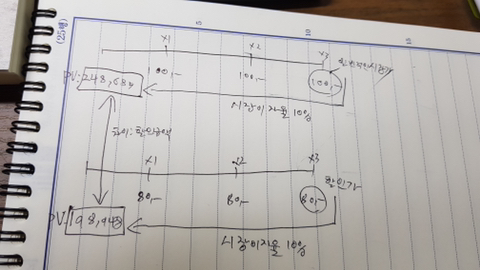 (25행)
5
10
15
x1
x2
x3
100,-
100,-
100,-
PV: 248,684
시장이자율 10%
차이: 할인금액
x1
x2
x3
할인가
80,-
80,-
80,-
PV: 198,948
시장이자율 10%